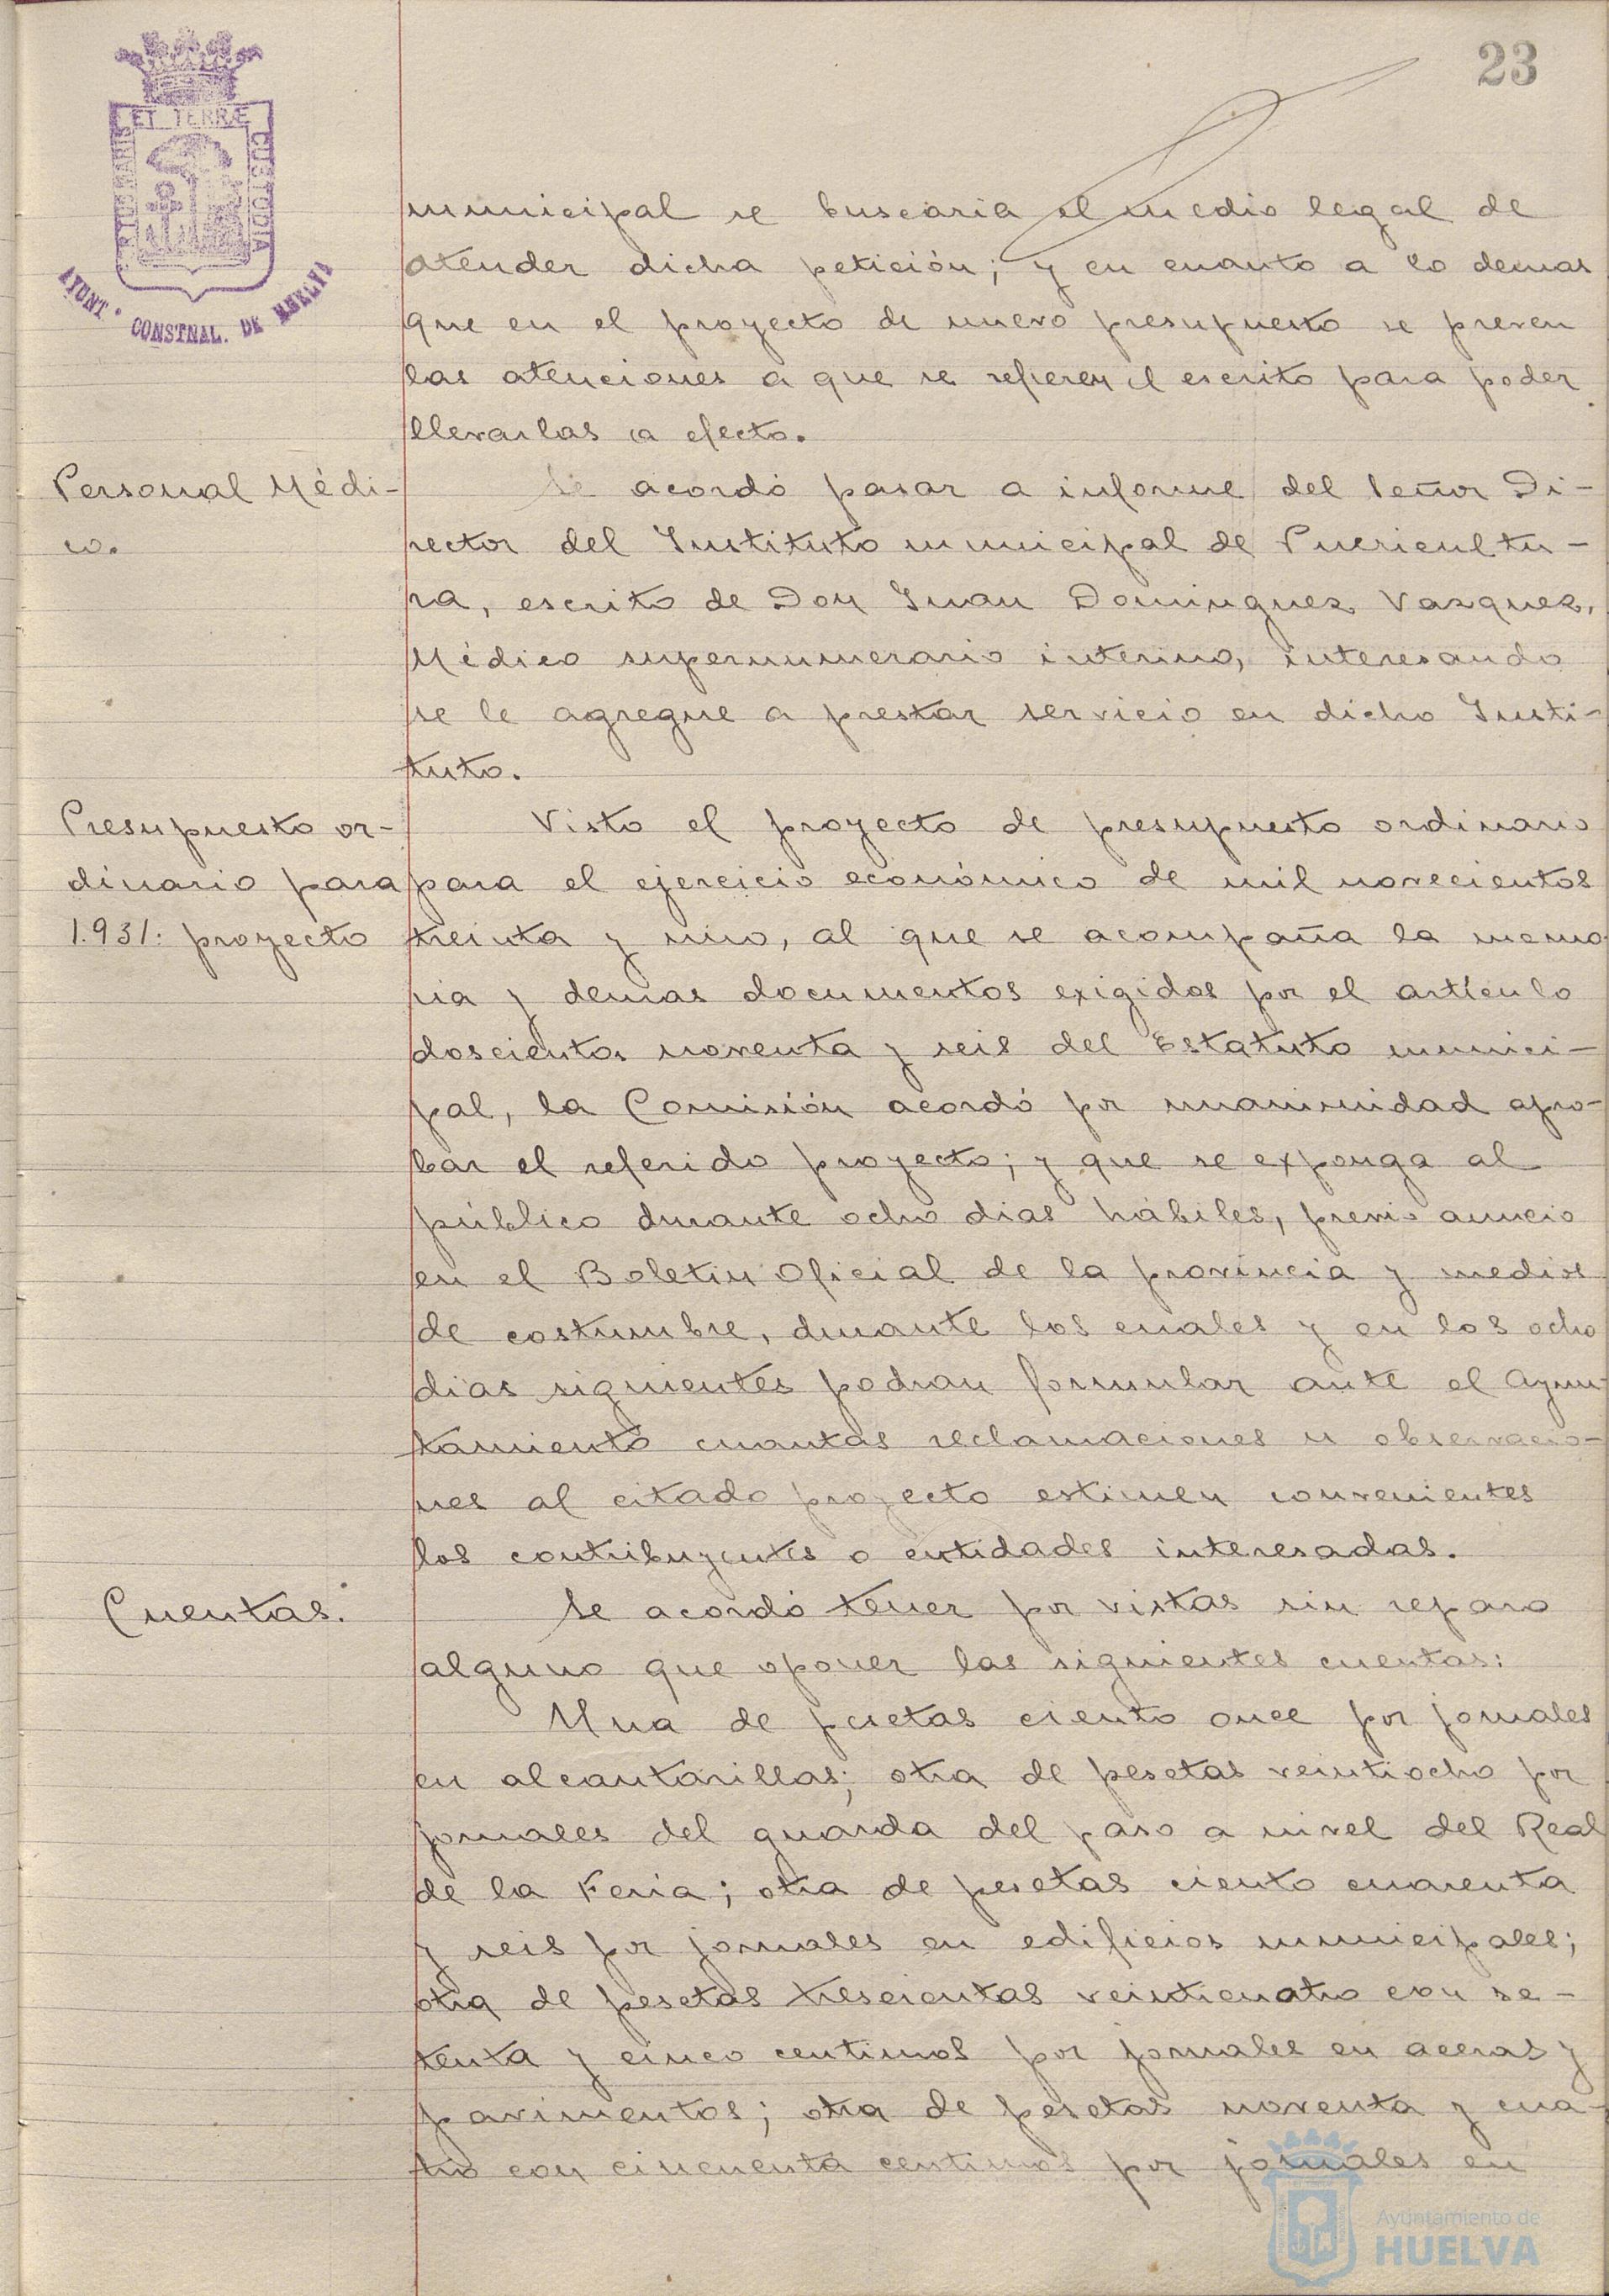 23
ET TERRÆ
PORTUS MARIS
CUSTODIA
AYUNT.º CONSTNAL. DE HUELVA
municipal se buscaria el medio legal de
atender dicha petición; y en cuanto a lo demas
que en el proyecto de nuevo presupuesto se preven
las atenciones a que se refieren el escrito para poder
llevarlas a efecto.
Personal Médi-
co.
Se acordó pasar a informe del Señor Di-
rector del Instituto municipal de Puericultu-
ra, escrito de Don Juan Dominguez Vazquez,
Médico supernumerario interino, interesando
se le agregue a prestar servicio en dicho Insti-
tuto.
Presupuesto or-
dinario para
1.931: proyecto
Visto el proyecto de presupuesto ordinario
para el ejercicio económico de mil novecientos
treinta y uno, al que se acompaña la memo-
ria y demas documentos exigidos por el artículo
doscientos noventa y seis del Estatuto munici-
pal, la Comisión acordó por unanimidad apro-
bar el referido proyecto; y que se exponga al
público durante ocho dias hábiles, previo anuncio
en el Boletin Oficial de la provincia y medios
de costumbre, durante los cuales y en los ocho
dias siguientes podran formular ante el Ayun-
tamiento cuantas reclamaciones u observacio-
nes al citado proyecto estimen convenientes
los contribuyentes o entidades interesadas.
Cuentas.
Se acordó tener por vistas sin reparo
alguno que oponer las siguientes cuentas:
Una de pesetas ciento once por jornales
en alcantarillas; otra de pesetas veintiocho por
jornales del guarda del paso a nivel del Real
de la Feria; otra de pesetas ciento cuarenta
y seis por jornales en edificios municipales;
otra de pesetas trescientas veinticuatro con se-
tenta y cinco centimos por jornales en aceras y
pavimentos; otra de pesetas noventa y cua-
tro con cincuenta centimos por jornales en
Ayuntamiento de
HUELVA